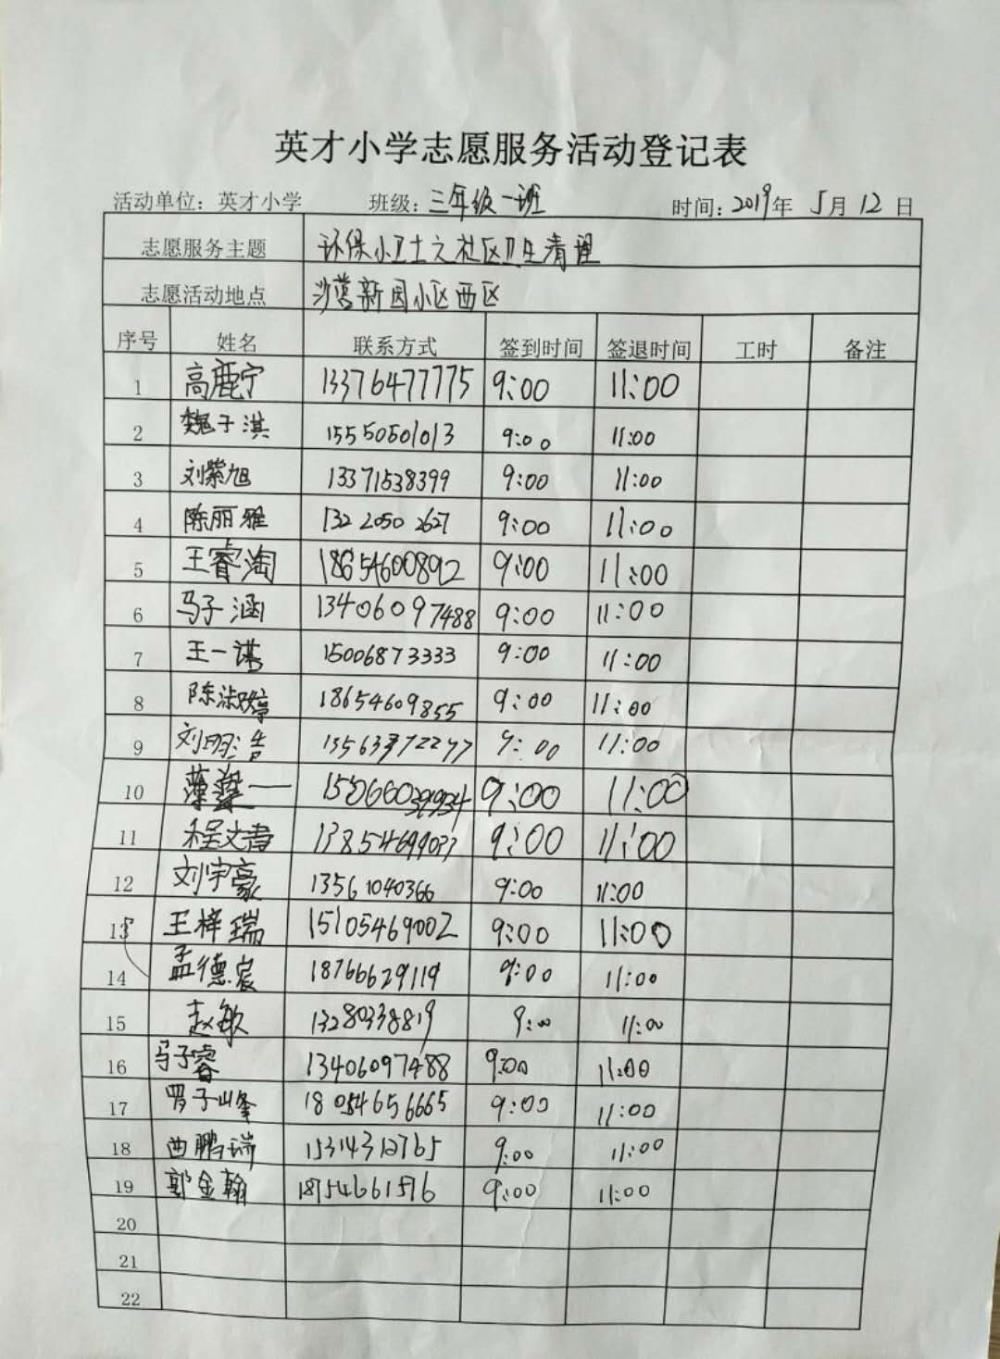 英才小学志愿服务活动登记表
活动单位：英才小学 班级：三年级一班 时间：2019年 5月12日
志愿服务主题 环保小卫士之社区卫生清理
志愿活动地点 沙营新园小区西区
序号 姓名 联系方式 签到时间 签退时间 工时 备注
1 高鹿宁 13376477775 9:00 11:00
2 魏子淇 15550501013 9:00 11:00
3 刘紫旭 13371538399 9:00 11:00
4 陈丽雅 132 2050 2627 9:00 11:00
5 王睿淘 18654600892 9:00 11:00
6 马子涵 13406097488 9:00 11:00
7 王一诺 15006873333 9:00 11:00
8 陈淑婷 18654609855 9:00 11:00
9 刘明浩 9:00 11:00
10 15066039934 9:00 11:00
11 程文 9:00 11:00
12 刘宇豪 13561040366 9:00 11:00
13 王梓瑞 15105469002 9:00 11:00
14 孟德宸 18766629119 9:00 11:00
15 赵敏 13280338819 9:00 11:00
16 马子睿 13406097488 9:00 11:00
17 罗子峰 18054656665 9:00 11:00
18 曲鹏瑞 15314312765 9:00 11:00
19 郭金翰 18754661516 9:00 11:00
20
21
22